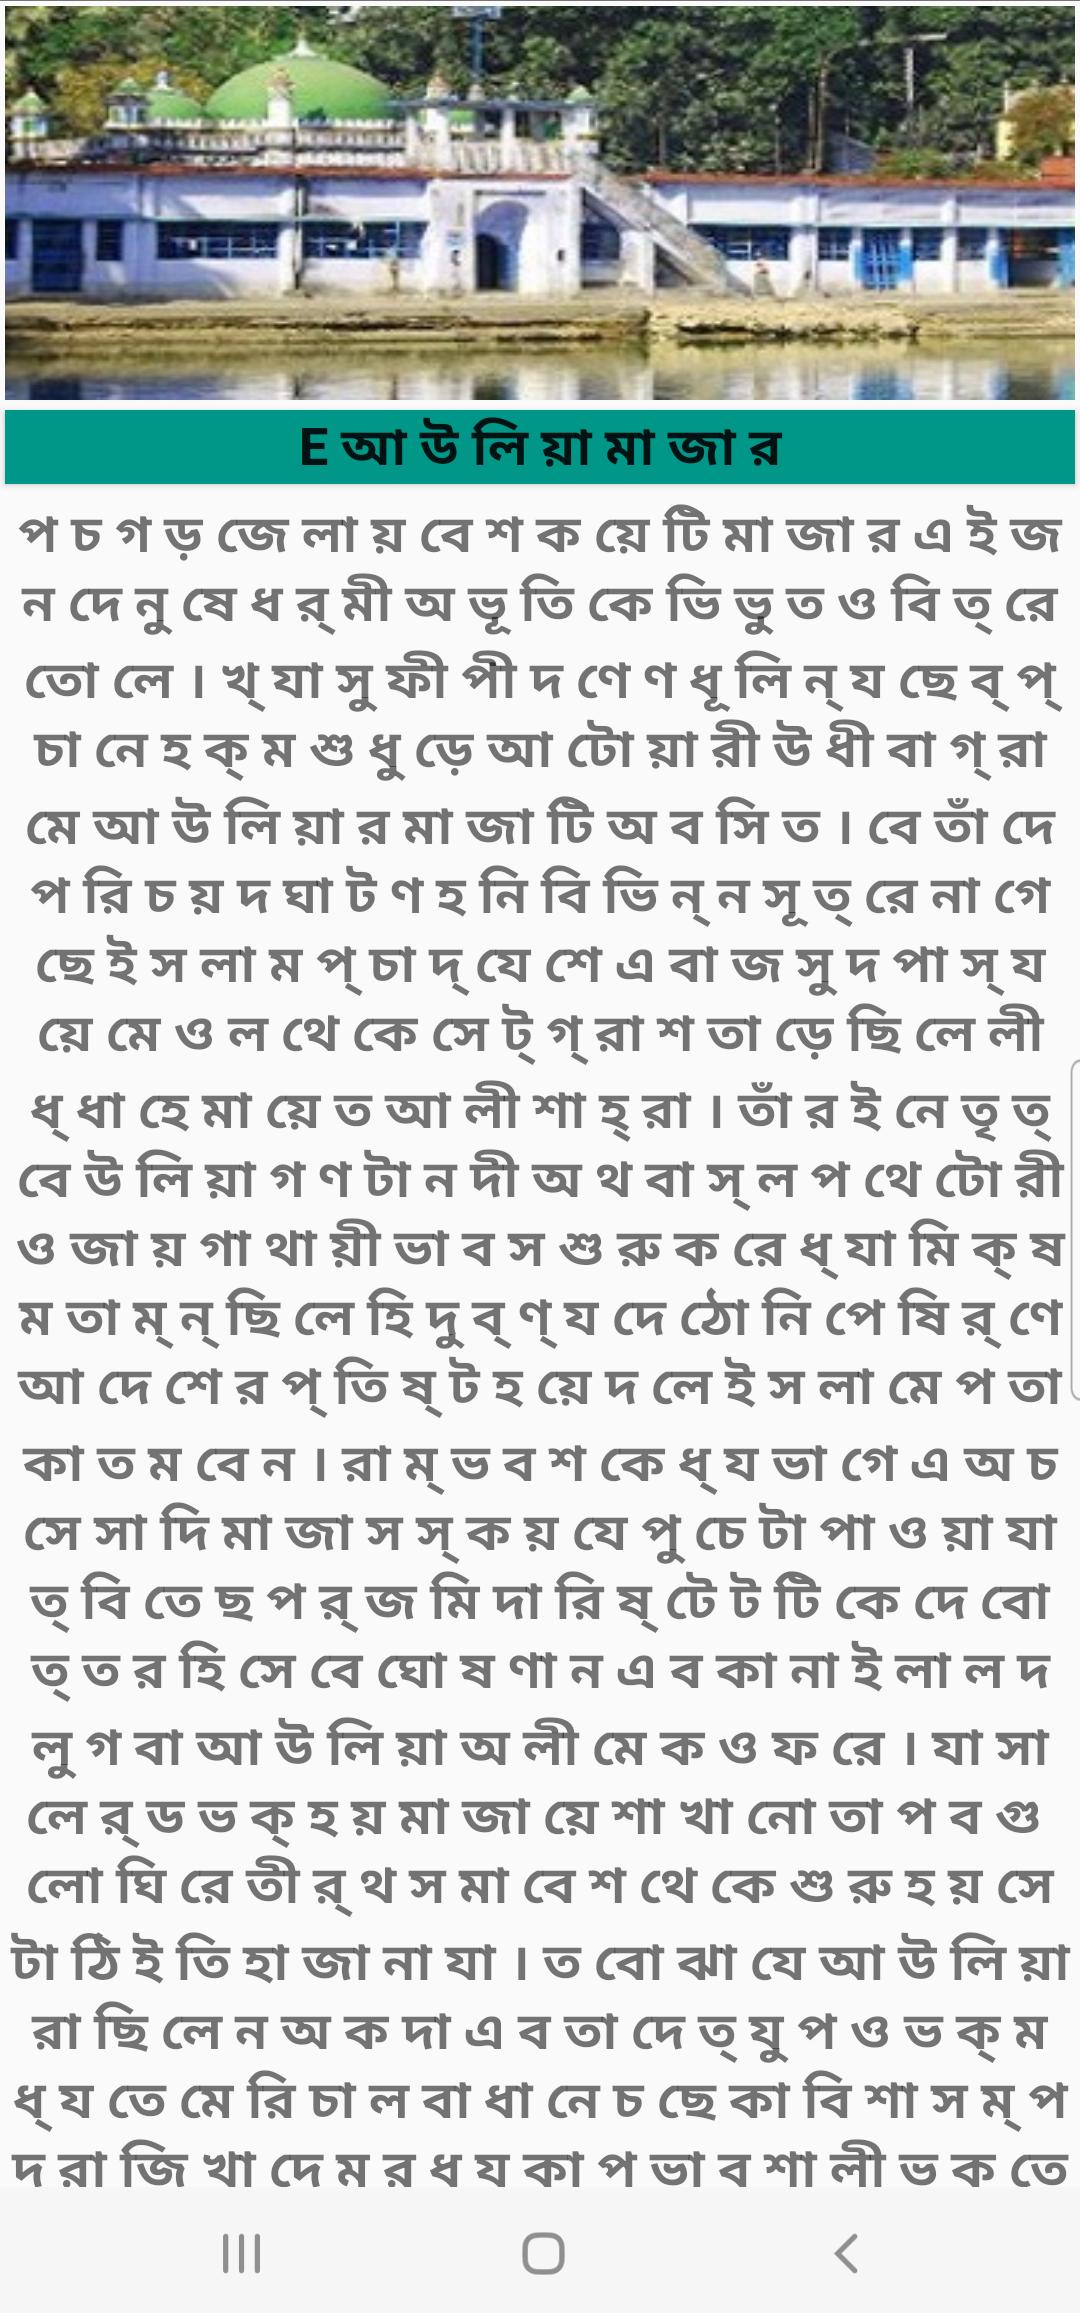 E আ উ লি য়া মা জা র
প চ গ ড় জে লা য় বে শ ক য়ে টি মা জা র এ ই জ
ন দে নু ষে ধ র্ মী অ ভূ তি কে ভি ভু ত ও বি ত্ রে
তো লে । খ্ যা সু ফী পী দ ণে ণ ধূ লি ন্ য ছে ব্ প্
চা নে হ ক্ ম শু ধু ড়ে আ টো য়া রী উ ধী বা গ্ রা
মে আ উ লি য়া র মা জা টি অ ব সি ত । বে তাঁ দে
প রি চ য় দ ঘা ট ণ হ নি বি ভি ন্ ন সূ ত্ রে না গে
ছে ই স লা ম প্ চা দ্ যে শে এ বা জ সু দ পা স্ য
য়ে মে ও ল থে কে সে ট্ গ্ রা শ তা ড়ে ছি লে লী
ধ্ ধা হে মা য়ে ত আ লী শা হ্ রা । তাঁ র ই নে তৃ ত্
বে উ লি য়া গ ণ টা ন দী অ থ বা স্ ল প থে টো রী
ও জা য় গা থা য়ী ভা ব স শু রু ক রে ধ্ যা মি ক্ ষ
ম তা ম্ ন্ ছি লে হি দু ব্ ণ্ য দে ঠো নি পে ষি র্ ণে
আ দে শে র প্ তি ষ্ ট হ য়ে দ লে ই স লা মে প তা
কা ত ম বে ন । রা ম্ ভ ব শ কে ধ্ য ভা গে এ অ চ
সে সা দি মা জা স স্ ক য় যে পু চে টা পা ও য়া যা
ত্ বি তে ছ প র্ জ মি দা রি ষ্ টে ট টি কে দে বো
ত্ ত র হি সে বে ঘো ষ ণা ন এ ব কা না ই লা ল দ
লু গ বা আ উ লি য়া অ লী মে ক ও ফ রে । যা সা
লে র্ ড ভ ক্ হ য় মা জা য়ে শা খা নো তা প ব গু
লো ঘি রে তী র্ থ স মা বে শ থে কে শু রু হ য় সে
টা ঠি ই তি হা জা না যা । ত বো ঝা যে আ উ লি য়া
রা ছি লে ন অ ক দা এ ব তা দে ত্ যু প ও ভ ক্ ম
ধ্ য তে মে রি চা ল বা ধা নে চ ছে কা বি শা স ম্ প
দ রা জি খা দে ম র ধ য কা প ভা ব শা লী ভ ক তে